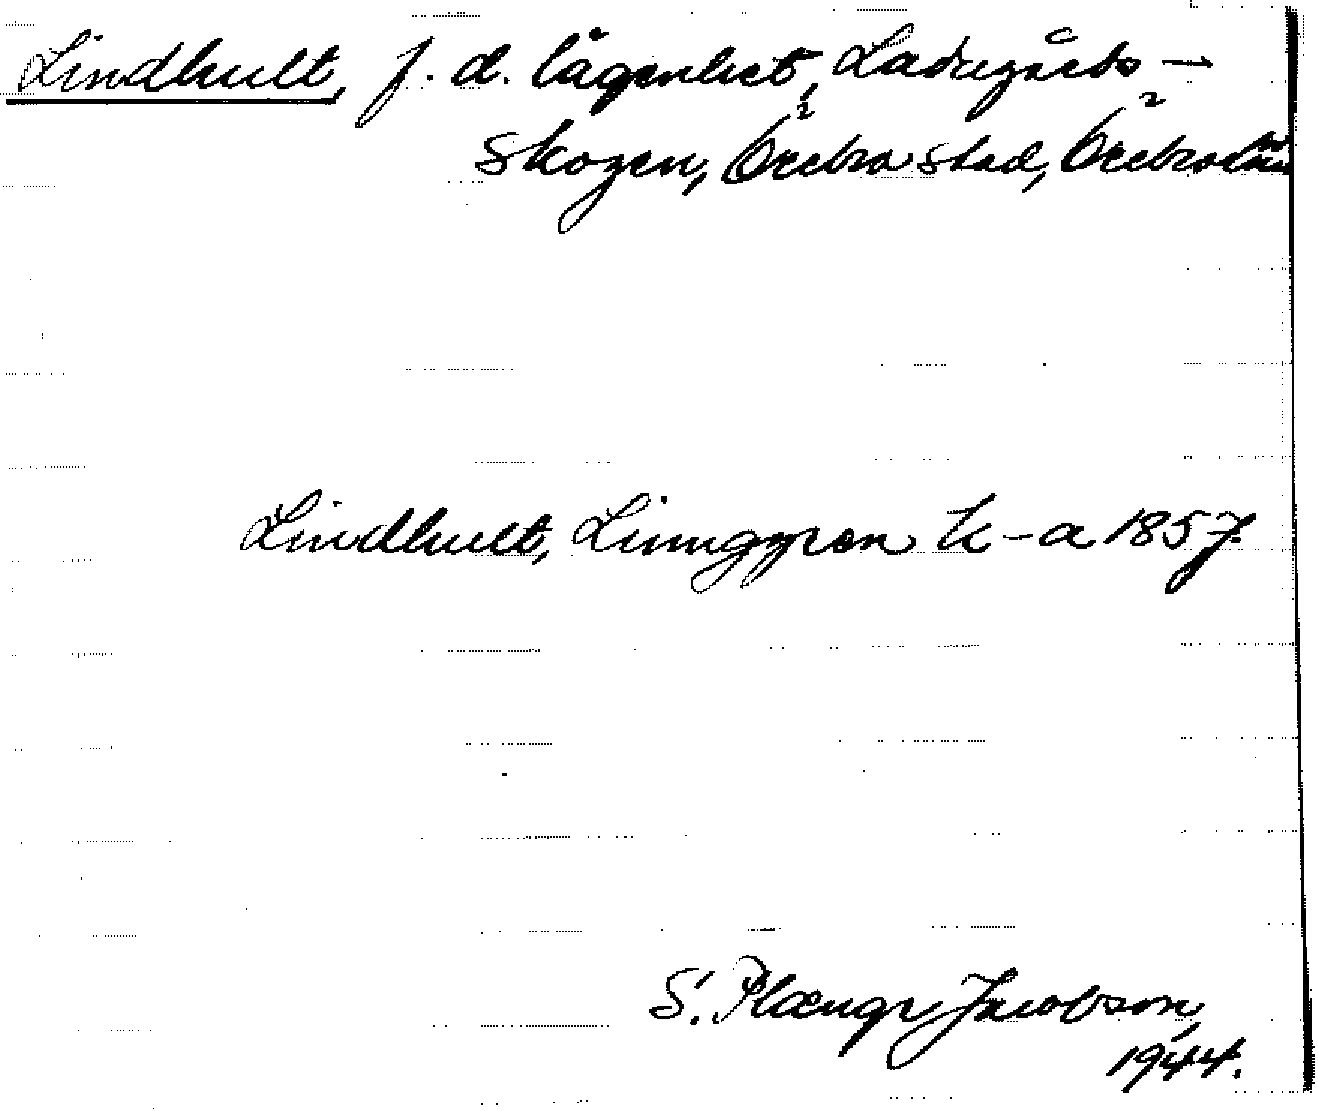 Lindhult, f. d. lägenhet, Ladugårds-
skogen, Örebro stad, Örebro län
Lindhult, Ljunggren k-a 1857.
S. Jacobson,
1944.